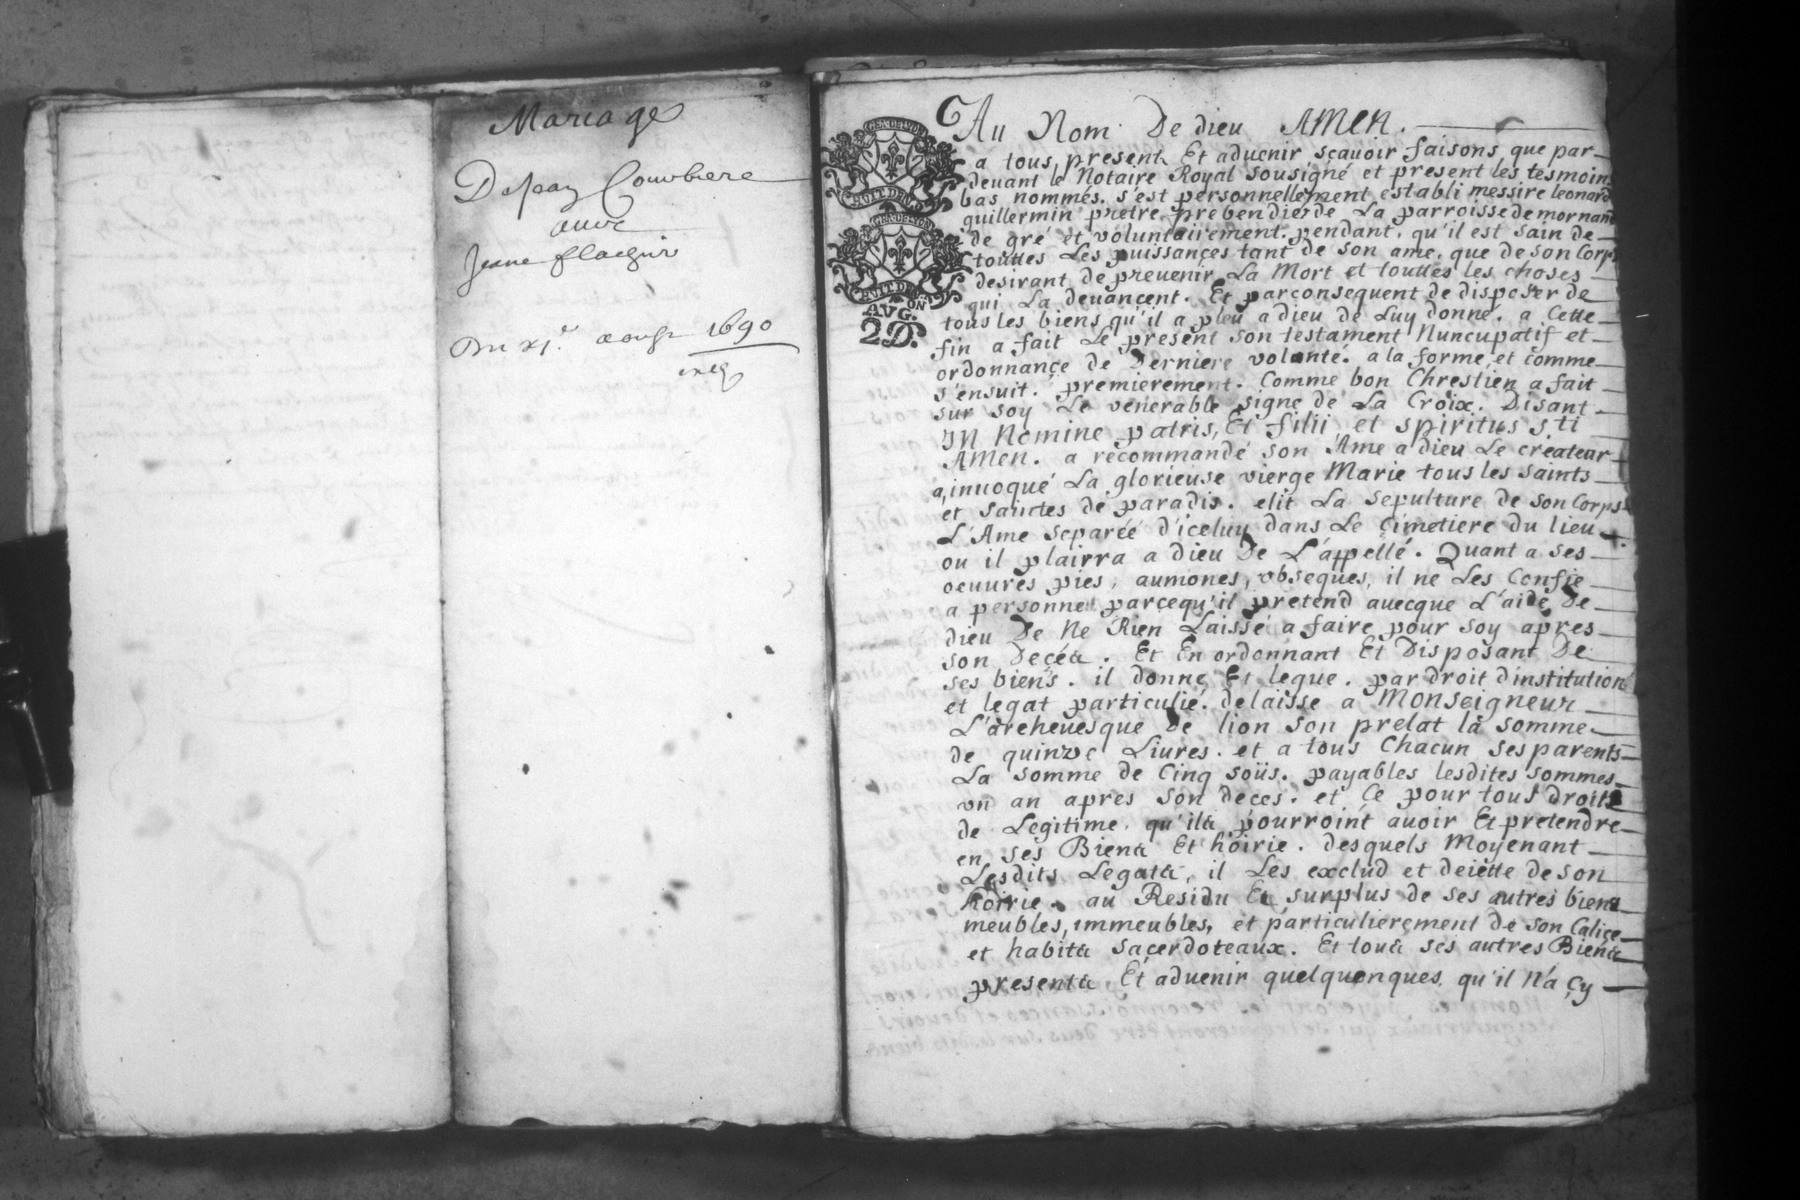 Mariage
Dejean Courbiere
avec
Jeane flachier
Du xj.e aoust 1690
GEN.DE LYON
HUIT DEN.
GEN.DE LYON
HUIT DEN.
AVG.ON
2D.
Au Nom De dieu AMEN.
a tous presents Et aduenir sçauoir faisons que par
deuant le Notaire Royal sousigné et present les tesmoins
bas nommés. s'est personnellement establi messire leonard
guillermin pretre prebendier de La parroisse de mornand
de gré et voluntairement. pendant. qu'il est sain de
touttes Les puissançes tant de son ame, que de son Corps
desirant de preuenir La Mort et touttes les choses
qui La deuançent. Et parconsequent de disposer de
tous les biens qu'il a pleu a dieu de Luy donné. a Cette
fin a fait Le present son testament Nuncupatif et
ordonnançe de Derniere volonté. a la forme et comme
s'ensuit. premierement. Comme bon Chrestien a fait
sur soy Le venerable signe de La Croix. Disant
IN Nomine patris, Et filii et spiritus sti
AMEN. a recommandé son Ame a dieu Le createur
a, inuoqué La glorieuse vierge Marie tous les saints
et sanctes de paradis. elit La sepulture de son Corps
L'Ame separéé d'iceluy dans Le Çimetiere du lieu
ou il plairra a dieu De L'appellé. Quant a ses
oeuures pies, aumones, obseques, il ne Les Confie
a personne parcequ'il pretend auecque L'aide De
dieu De Ne Rien Laissé a faire pour soy apres
son Deçés. Et En ordonnant Et Disposant De
ses biens. il donne Et legue. par droit d'institution
et legat particulié. delaisse a Monseigneur
L'archeuesque De lion son prelat la somme
de quinze Liures. et a tous Chacun ses parents
La somme de Cinq soüs. payables lesdites sommes
vn an apres son deces. et Ce pour tous droits
de Legitime. qu'ils pourroint auoir Et pretendre
en ses Biens Et hoirie. desquels Moyenant
Lesdits Legats, il Les exclud et deiette de son
hoirie. au Residu Et surplus de ses autres biens
meubles, immeubles, et particulierement de son Calice
et habits sacerdoteaux. Et tous ses autres Biens
presents Et aduenir quelquonques, qu'il N'a Cy